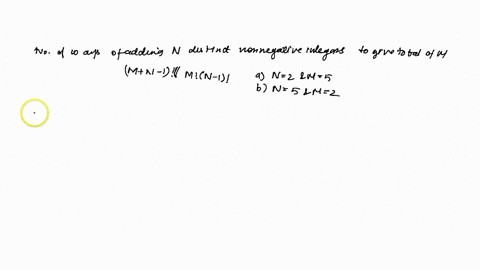 No. of ways of adding N distinct nonnegative integers to give total of M
(M+N-1)!/ M!(N-1)! a) N=2 & M=5
b) N=5 & M=2